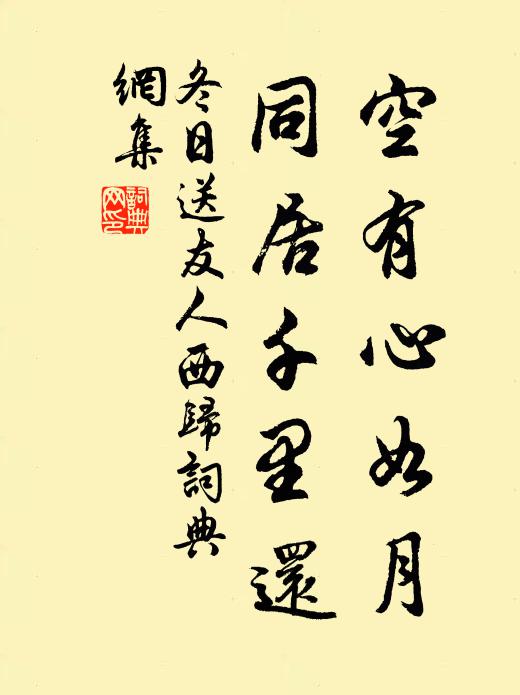 空有心如月
同居千里還
冬日送友人西歸詞典
網集
詞典
网印